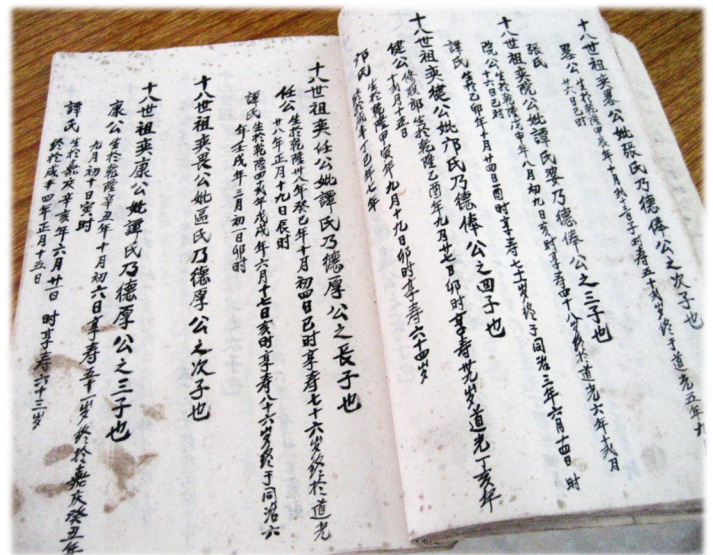 十八世祖奕畧公妣張氏乃德偉公之次子也
畧公生於乾隆甲辰年十月 子时享寿五十 岁终于道光五年九
廿六日己时
張氏
十八世祖奕院公妣譚氏晏乃德偉公之三子也
院公生於乾隆戊申年八月初九日亥时享寿四十八岁终於道光六年十 月
十六日己时
譚氏生於己卯年十月廿四日酉时享寿七十 岁终于同治三年六月十四日 时
十八世祖奕健公妣邝氏乃德偉公之四子也
健公 生於乾隆乙酉年九月廿七日卯时享寿卅九岁道光丁亥年
十 月十五日
邝氏生於乾隆甲寅年九月十九日卯时享寿六十四岁
终於咸丰丁巳年七年
十八世祖奕任公妣譚氏乃德厚公之長子也
任公生於乾隆卅八年癸巳年十月初四日己时享寿七十六岁终於道光
廿八年正月十九日辰时
譚氏生於乾隆四 年戊戌年六月十七日亥时享寿八十六岁终于同治六
年壬戌年三月初一日卯时
十八世祖奕畏公妣區氏乃德厚公之次子也
十八世祖奕康公妣譚氏乃德厚公之三子也
康公生於乾隆辛丑年十月初六日享寿五十一岁终於嘉庆癸丑年
九月初十日寅时
譚氏生於嘉庆辛亥年六月廿一日 时享寿六十三岁
终於咸丰四年正月十五日